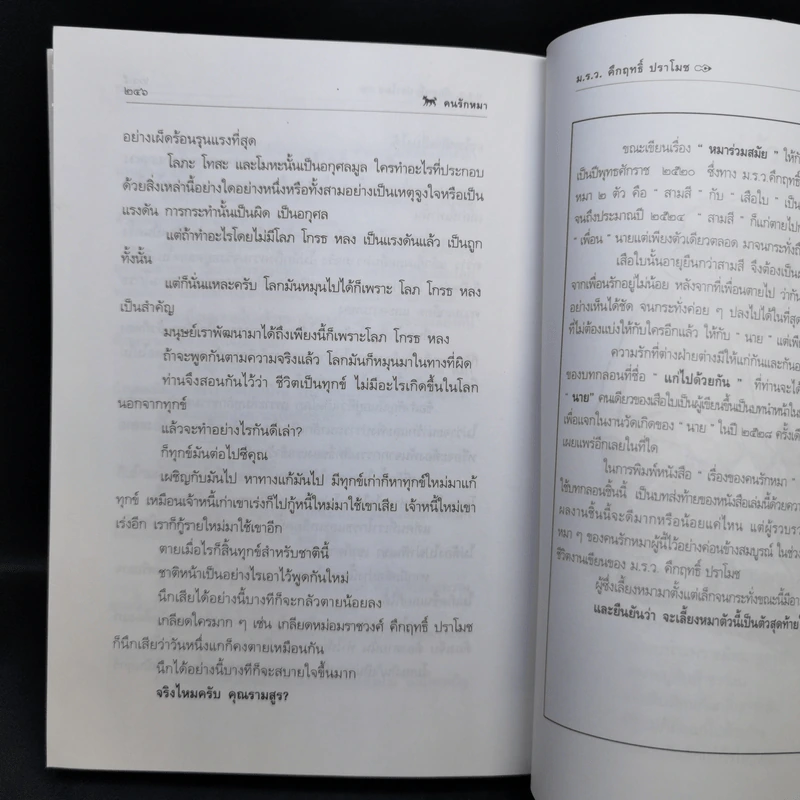 ๒๔๖
คนรักหมา
อย่างเผ็ดร้อนรุนแรงที่สุด
โลภะ โทสะ และโมหะนั้นเป็นอกุศลมูล ใครทำอะไรที่ประกอบ
ด้วยสิ่งเหล่านี้อย่างใดอย่างหนึ่งหรือทั้งสามอย่างเป็นเหตุจูงใจหรือเป็น
แรงดัน การกระทำนั้นเป็นผิด เป็นอกุศล
แต่ถ้าทำอะไรโดยไม่มีโลภ โกรธ หลง เป็นแรงดันแล้ว เป็นถูก
ทั้งนั้น
แต่ก็นั่นแหละครับ โลกมันหมุนไปได้ก็เพราะ โลภ โกรธ หลง
เป็นสำคัญ
มนุษย์เราพัฒนามาได้ถึงเพียงนี้ก็เพราะโลภ โกรธ หลง
ถ้าจะพูดกันตามความจริงแล้ว โลกมันก็หมุนมาในทางที่ผิด
ท่านจึงสอนกันไว้ว่า ชีวิตเป็นทุกข์ ไม่มีอะไรเกิดขึ้นในโลก
นอกจากทุกข์
แล้วจะทำอย่างไรกันดีเล่า?
ก็ทุกข์มันต่อไปซีคุณ
เผชิญกับมันไป หาทางแก้มันไป มีทุกข์เก่าก็หาทุกข์ใหม่มาแก้
ทุกข์ เหมือนเจ้าหนี้เก่าเขาเร่งก็ไปกู้หนี้ใหม่มาใช้เขาเสีย เจ้าหนี้ใหม่เขา
เร่งอีก เราก็กู้รายใหม่มาใช้เขาอีก
ตายเมื่อไรก็สิ้นทุกข์สำหรับชาตินี้
ชาติหน้าเป็นอย่างไรเอาไว้พูดกันใหม่
นึกเสียได้อย่างนี้บางทีก็จะกลัวตายน้อยลง
เกลียดใครมาก ๆ เช่น เกลียดหม่อมราชวงศ์ คึกฤทธิ์ ปราโมช
ก็นึกเสียว่าวันหนึ่งแกก็คงตายเหมือนกัน
นึกได้อย่างนี้บางทีก็จะสบายใจขึ้นมาก
จริงไหมครับ คุณรามสูร?
ม.ร.ว. คึกฤทธิ์ ปราโมช
ขณะเขียนเรื่อง " หมาร่วมสมัย " ให้กั
เป็นปีพุทธศักราช ๒๕๒๐ ซึ่งทาง ม.ร.ว.คึกฤทธิ์
หมา ๒ ตัว คือ " สามสี " กับ " เสือใบ " เป็น
จนถึงประมาณปี ๒๕๒๔ " สามสี " ก็แก่ตายไป
" เพื่อน " นายแต่เพียงตัวเดียวตลอด มาจนกระทั่งถึ
เสือใบนั้นอายุยืนกว่าสามสี จึงต้องเป็น
จากเพื่อนรักอยู่ไม่น้อย หลังจากที่เพื่อนตายไป ว่ากัน
อย่างเห็นได้ชัด จนกระทั่งค่อย ๆ ปลงไปได้ในที่สุด
ที่ไม่ต้องแบ่งให้กับใครอีกแล้ว ให้กับ " นาย " แต่เพี
ความรักที่ต่างฝ่ายต่างมีให้แก่กันและกัน
ของบทกลอนที่ชื่อ " แก่ไปด้วยกัน " ที่ท่านจะได้
" นาย" คนเดียวของเสือใบเป็นผู้เขียนขึ้นเป็นบทนำหน้าใน
เพื่อแจกในงานวัดเกิดของ " นาย " ในปี ๒๕๒๘ ครั้งเดี
เผยแพร่อีกเลยในที่ใด
ในการพิมพ์หนังสือ " เรื่องของคนรักหมา "
ใช้บทกลอนชิ้นนี้ เป็นบทส่งท้ายของหนังสือเล่มนี้ด้วยควา
ผลงานชิ้นนี้จะดีมากหรือน้อยแค่ไหน แต่ผู้รวบรว
หมา ๆ ของคนรักหมาผู้นี้ไว้อย่างค่อนข้างสมบูรณ์ ในช่วง
ชีวิตงานเขียนของ ม.ร.ว. คึกฤทธิ์ ปราโมช
ผู้ซึ่งเลี้ยงหมามาตั้งแต่เล็กจนกระทั่งขณะนี้มีอา
และยืนยันว่า จะเลี้ยงหมาตัวนี้เป็นตัวสุดท้าย